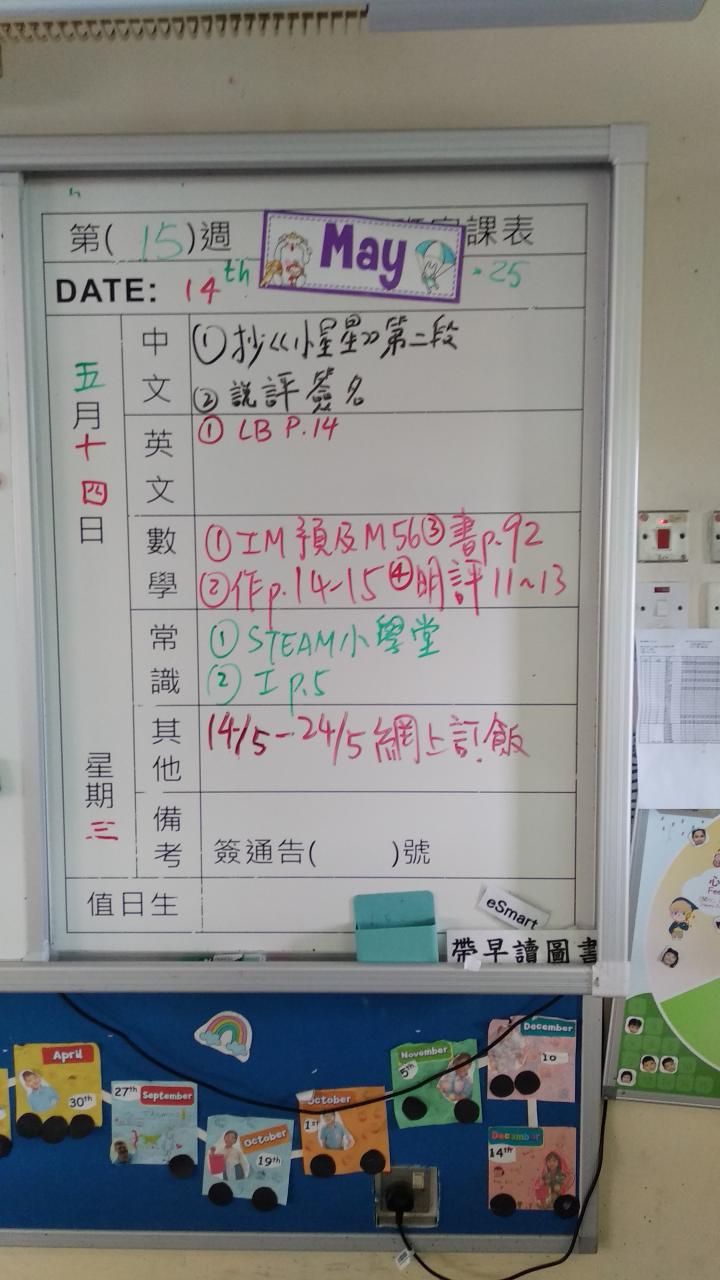 第( 15 )週
課表
May
DATE: 14th
.25
五月十四日
星期三
中文
①抄《小星星》第二段
②說評簽名
英文
① LB P.14
數學
①工M預及M56③書p.92
②作p.14-15④明評11~13
常識
①STEAM小學堂
②工p.5
其他
14/5-24/5網上訂飯
備考
簽通告( )號
值日生
eSmart
帶早讀圖書
April
30th
27th
September
October
19th
October
1st
November
5th
December
10
December
14th